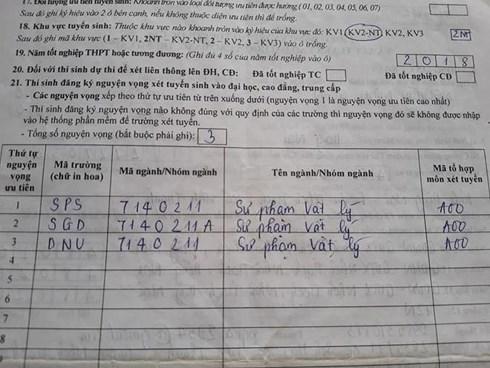 17. Đối tượng ưu tiên tuyển sinh: Khoanh tròn vào loại đối tượng ưu tiên được hưởng ( 01, 02, 03, 04, 05, 06, 07)
Sau đó ghi ký hiệu vào 2 ô bên cạnh, nếu không thuộc diện ưu tiên thì để trống.
18. Khu vực tuyển sinh: Thuộc khu vực nào khoanh tròn vào ký hiệu của khu vực đó: KV1, KV2-NT, KV2, KV3
Sau đó ghi mã khu vực (1 – KV1, 2NT – KV2-NT, 2 – KV2, 3 – KV3) vào ô trống. 2NT
19. Năm tốt nghiệp THPT hoặc tương đương: (Ghi đủ 4 số của năm tốt nghiệp vào ô) 2018
20. Đối với thí sinh dự thi để xét liên thông lên ĐH, CĐ: Đã tốt nghiệp TC Đã tốt nghiệp CĐ
21. Thí sinh đăng ký nguyện vọng xét tuyển sinh vào đại học, cao đẳng, trung cấp
- Các nguyện vọng xếp theo thứ tự ưu tiên từ trên xuống dưới (nguyện vọng 1 là nguyện vọng ưu tiên cao nhất)
- Thí sinh đăng ký nguyện vọng nào không đúng với quy định của các trường thì nguyện vọng đó sẽ không được nhập
vào hệ thống phần mềm để trường xét tuyển.
- Tổng số nguyện vọng (bắt buộc phải ghi): 3
Thứ tự nguyện vọng ưu tiên Mã trường (chữ in hoa) Mã ngành/Nhóm ngành Tên ngành/Nhóm ngành Mã tổ hợp môn xét tuyển
1 SPS 7140211 Sư phạm Vật lý A00
2 SGD 7140211A Sư phạm Vật lý A00
3 DNU 7140211 Sư phạm Vật lý A00
4
5
6
7
8